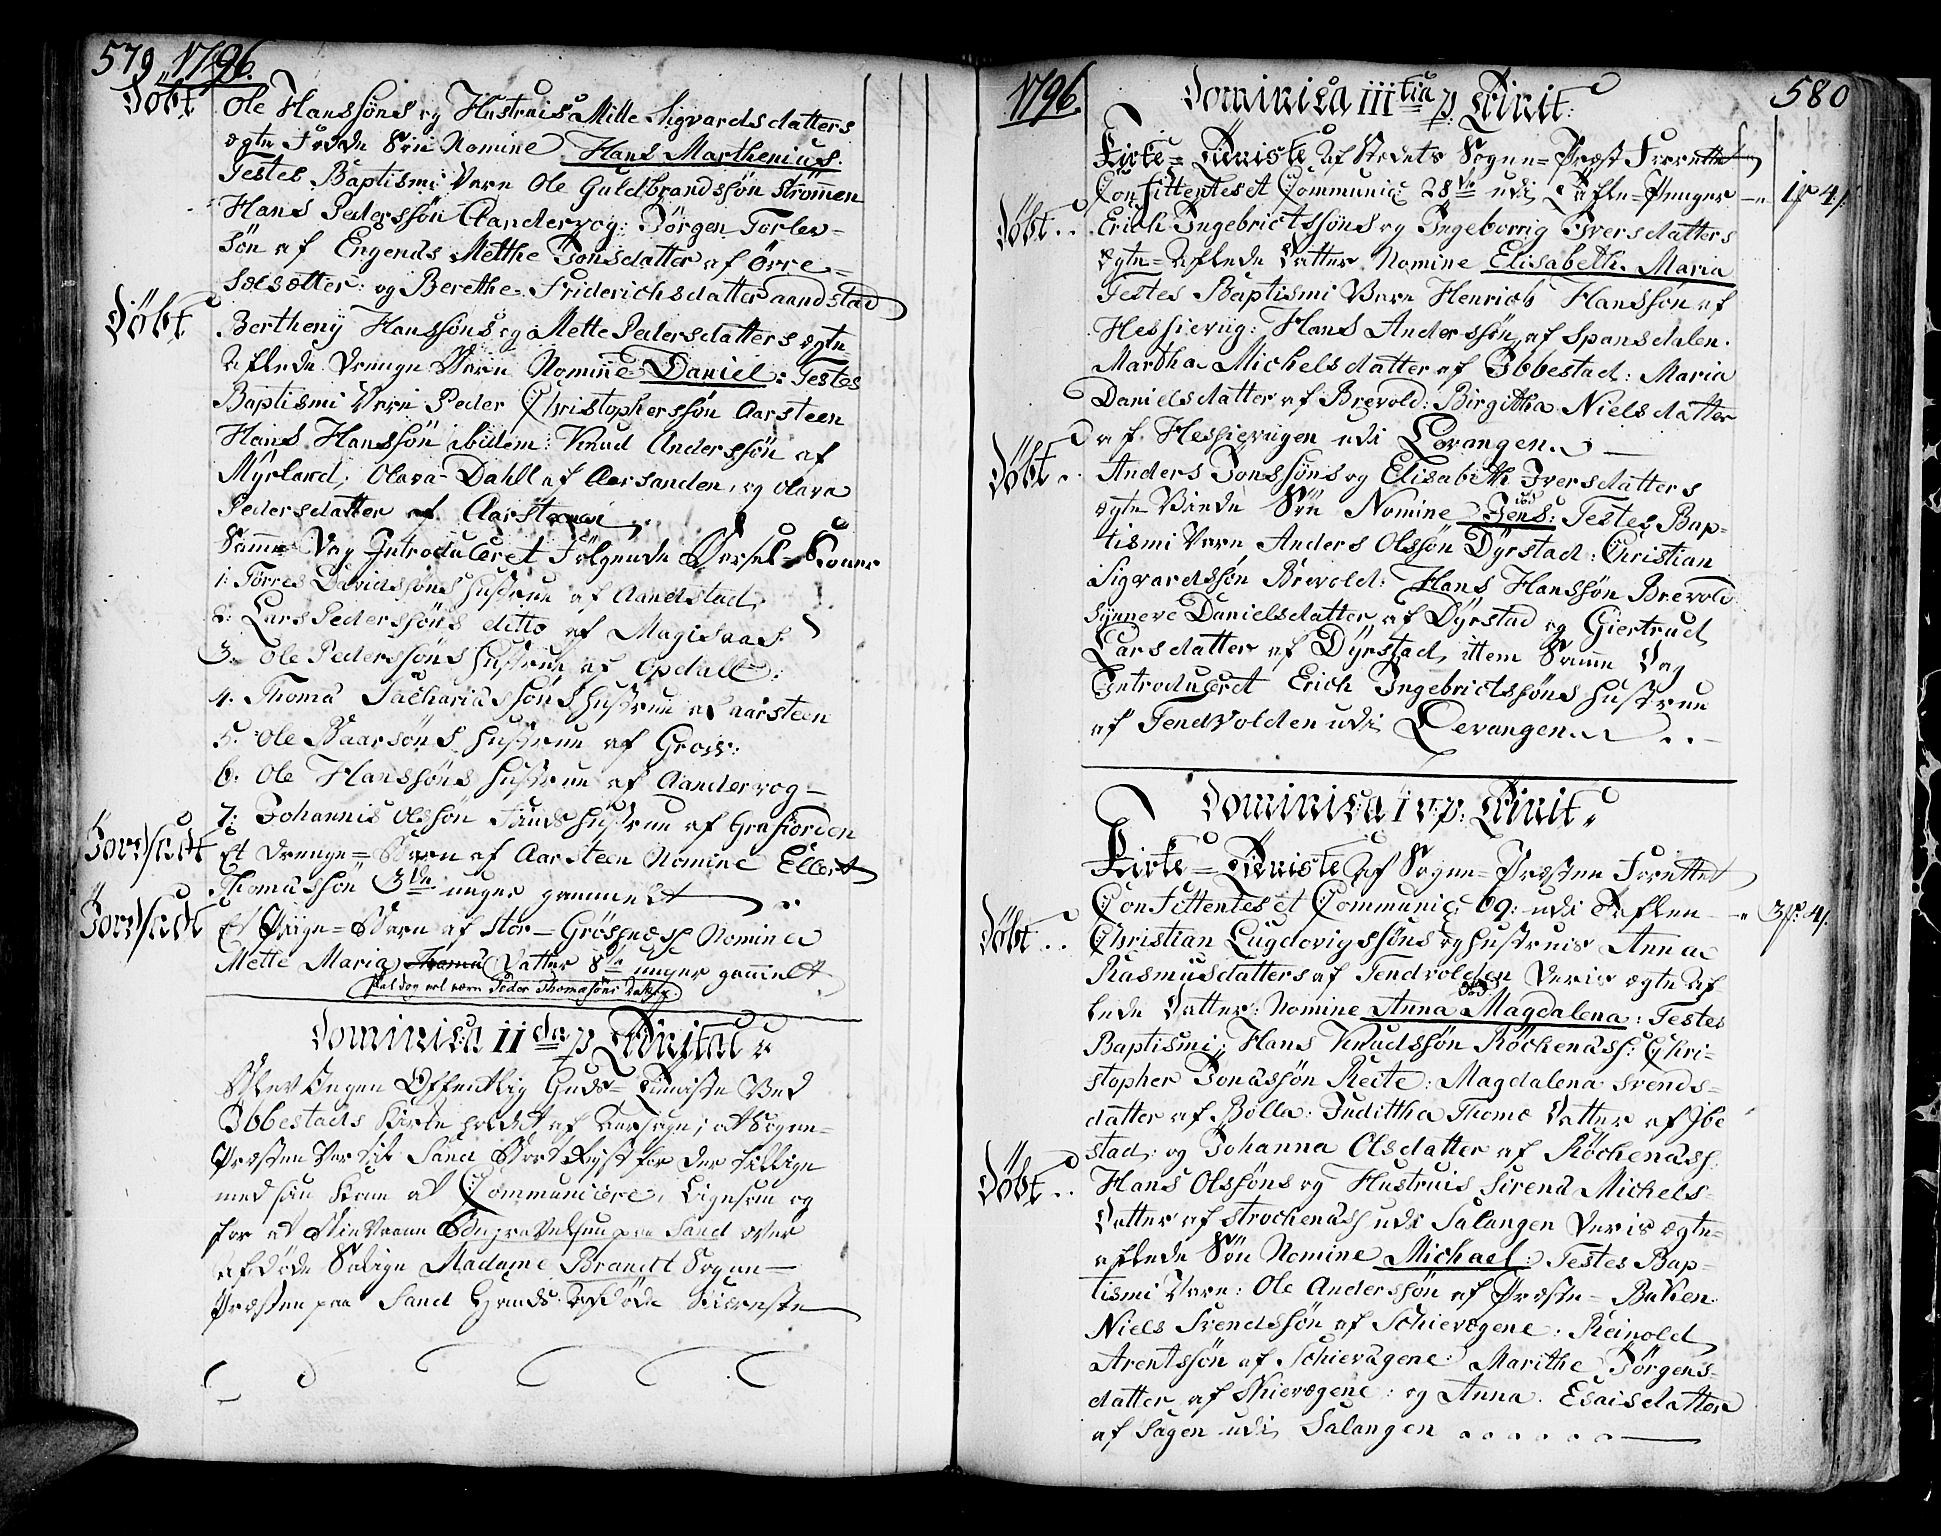 579 1796.
Döbt Ole Hanssöns og Hustruis Mille Sigvardsdatters
ægte Födde Sön Nomine Hans Marthenius.
Testes Baptismi Vare Ole Guldbrandssön Strömen
Hans Pederssön Aandervog: Jörgen Torlev-
sön af Engenes Metthe Jonsdatter af Örre-
sælsætter: og Berethe Friderichsdatter aandstad
Döbt Bertheny Hanssöns og Mette Pedersdatters ægte
Aflede Drenge Barn Nomine Daniel: Testes
Baptismi Vare Peder Christopherssön Aarsteen
Hans Hanssön ibidem: Knud Anderssön af
Myrland: Olava Dahl af Aarsanden, og Olava
Pedersdatter af Aarsteenen
Samme Dag Introduceret Fölgende Barsel-Koner
1: Törres Davidssöns Hustrue af Aandstad
2: Lars Pederssöns ditto af Magisaas:
3: Ole Pederssöns Hustrue af Opdall:
4. Thoma Sachariassöns Hustrue af Aarsteen
5. Ole Baarsöns Hustrue af Grov:
6: Ole Hanssöns Hustrue af Aandervog-
7: Johannis Olssön Sands Hustrue af Grafiorden
Jordfæstet Et Drenge-Barn af Aarsteen Nomine Ellert
Thomassön 3de uger gammelt
Jordfæstet Et Pige-Barn af Stor-Grössnæss Nomine
Mette Maria Thoma Datter 8te uger gammelt
skal dog vel være Peder Thomasöns datter.
Dominica IIda p. Trinitat:
Blev Ingen Offentlig Guds-Tieniste Ved
Ibbestads Kirke holdet af Aarsage, at Sogne-
Præsten Var til Sand Bortreyst for der tillige
med sin Kone at Communicere, Ligesom og
for at Bievaane paa Sand over
afdöde Salige Madame Brandt Sogne-
Præsten paa Sand Hands Afdöde Kiæreste
1796. Dominica IIItia p. Trinit: 580
Kirke-Tieniste Af Stedets Sogne-Præst Forrettet
Confittentes et Communic: 28de udi Tafle-Penger - 1 4
Döbt.. Erich Ingebrictssöns og Ingeborrig Iversdatters
ægte-Aflede Datter Nomine Elisabeth Maria
Testes Baptismi Vare Henrich Hanssön af
Hessievug: Hans Anderssön af Spansdalen.
Martha Michelsdatter af Ibbestad: Maria
Danielsdatter af Brevold: Birgitha Nielsdatter
af Hessievugen udi Lavangen.
Döbt.. Anders Jonssöns og Elisabeth Iversdatters
ægte Viede Sön Nomine Jens: Testes Bap-
tismi Vare Anders Olssön Dyrstad: Christian
Sigvardssön Brevold: Hans Hanssön Brevold
Synneve Danielsdatter af Dyrstad og Giertrud
Larsdatter af Dyrstad, ittem Samme Dag
Introduceret Erich Ingebrictssöns Hustrue
af Tendvolden udi Levangen.
Dominica IV p: Trinit.
Kirke-Tieniste Af Sogne-Præsten Forrettet
Confittentes et Communic: 69: udi Taflen - 3 4
Döbt.. Christian Lugdovigssöns og Hustruis Anna
Rasmusdatters af Tendvolden Deris ægte Af-
lede Datter: Nomine Anna Magdalena: Testes
Baptismi: Hans Knudssön Röckenæss: Chri-
stopher Jonassön Reite: Magdalena Svends-
datter af Bölla: Judittha Thomæ Datter af Ibe
stad: og Johanna Olsdatter af Röckenæss
Döbt.. Hans Olssöns og Hustruis Sirena Michels-
Datter af Strochenæs udi Salangen Deris ægte-
aflede Sön Nomine Michael: Testes Bap-
tismi Vare: Ole Anderssön af Præste-Baken.
Niels Svendssön af Schievogene: Reinold
Arentssön af Schievagene: Marithe Jörgens-
datter af Skievogene: og Anna Esaisdatter
af Sagen udi Salangen